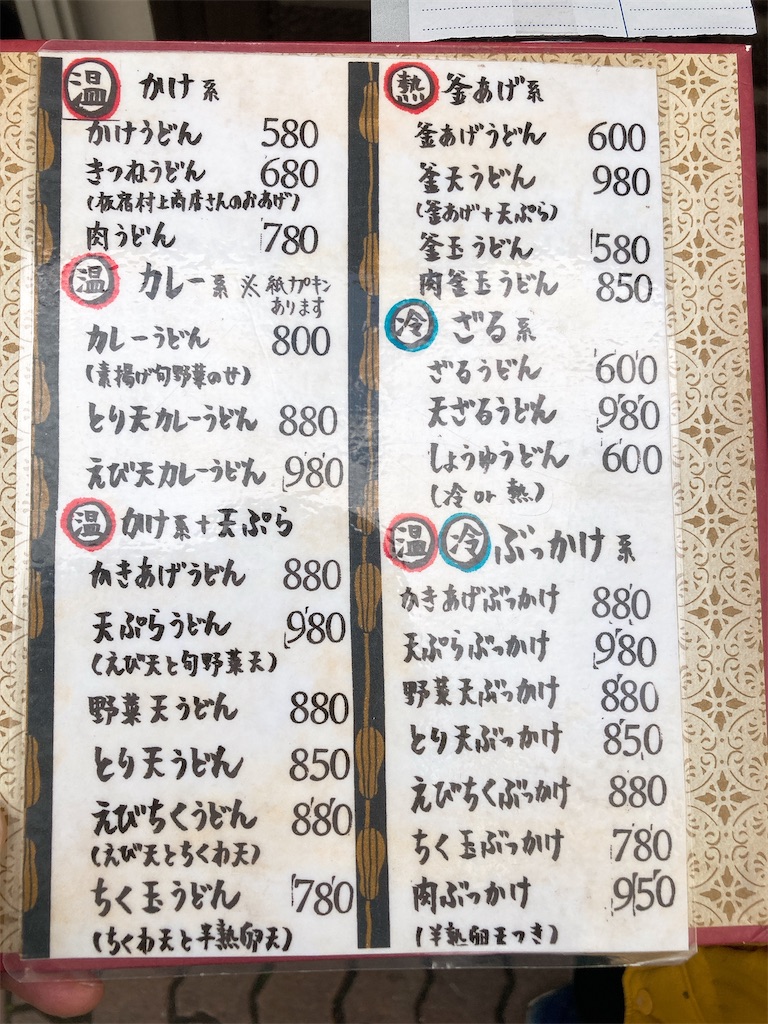 温 かけ系
かけうどん 580
きつねうどん 680
(板宿村上商店さんのおあげ)
肉うどん 780
温 カレー系 ※紙ナプキン
あります
カレーうどん 800
(素揚げ旬野菜のせ)
とり天カレーうどん 880
えび天カレーうどん 980
温 かけ系+天ぷら
かきあげうどん 880
天ぷらうどん 980
(えび天と旬野菜天)
野菜天うどん 880
とり天うどん 850
えびちくうどん 880
(えび天とちくわ天)
ちく玉うどん 780
(ちくわ天と半熟卵天)
熱 釜あげ系
釜あげうどん 600
釜天うどん 980
(釜あげ+天ぷら)
釜玉うどん 580
肉釜玉うどん 850
冷 ざる系
ざるうどん 600
天ざるうどん 980
しょうゆうどん 600
(冷 or 熱)
温 冷 ぶっかけ系
かきあげぶっかけ 880
天ぷらぶっかけ 980
野菜天ぶっかけ 880
とり天ぶっかけ 850
えびちくぶっかけ 880
ちく玉ぶっかけ 780
肉ぶっかけ 950
(半熟卵天つき)